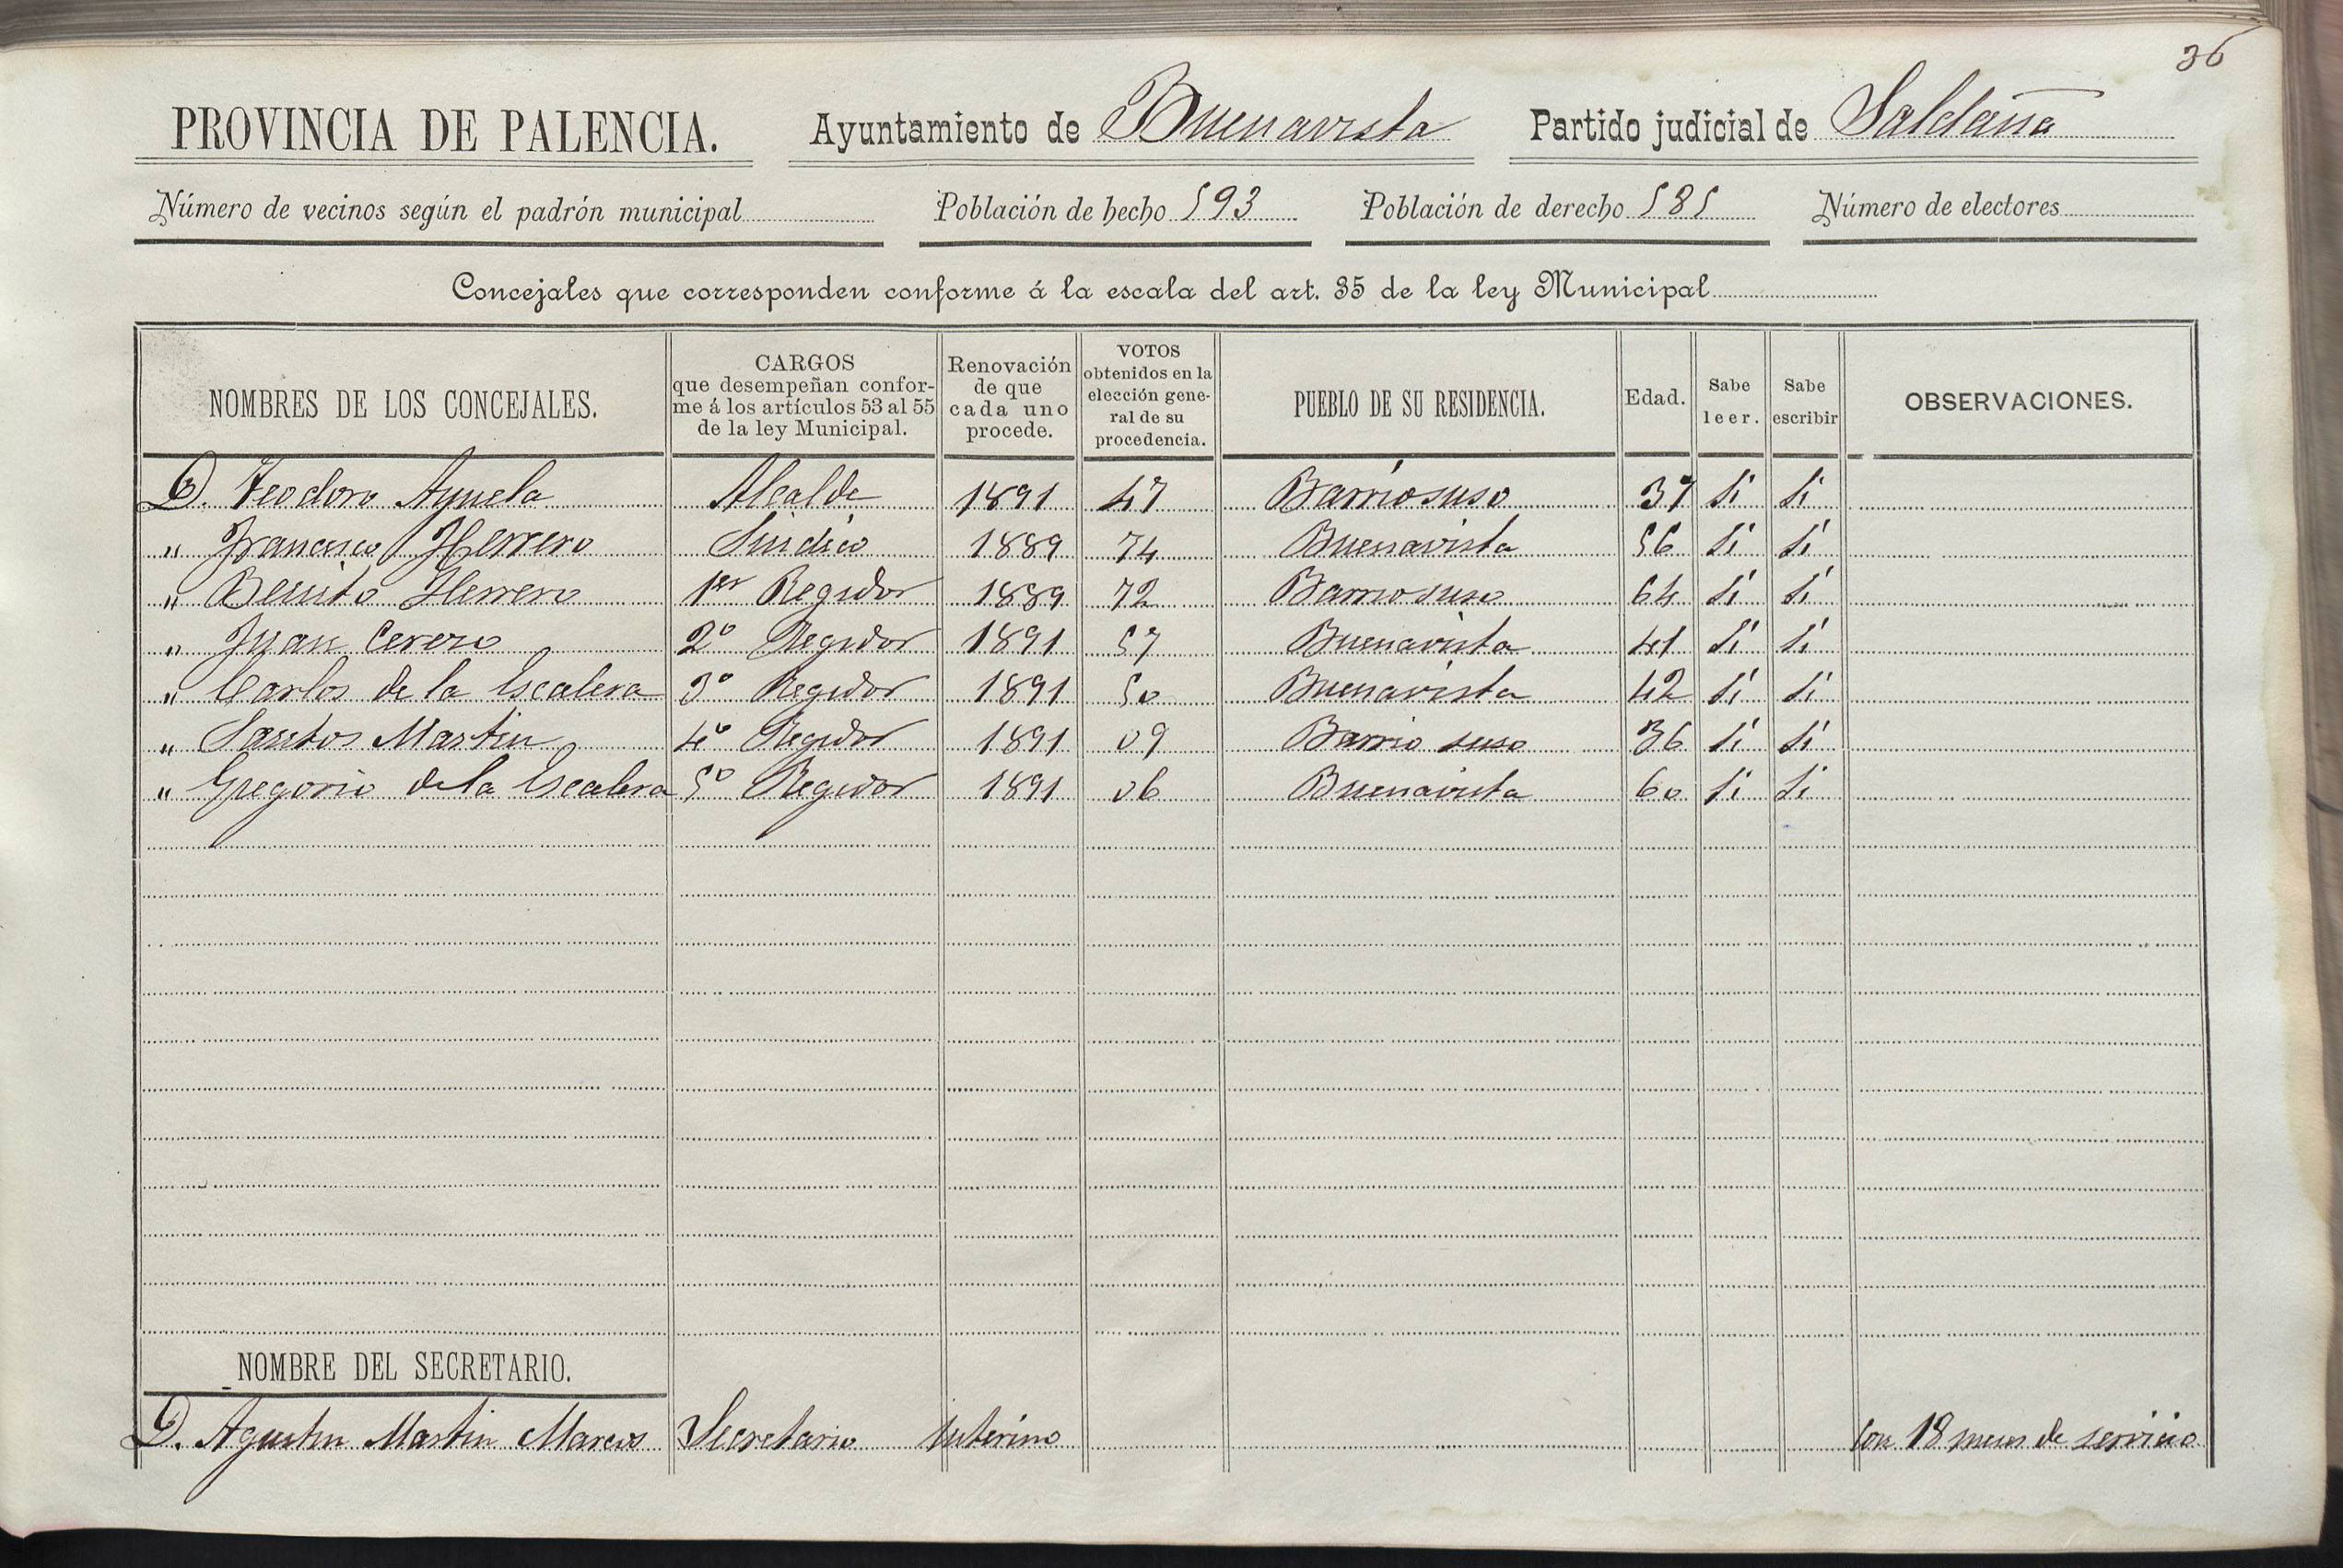 36
PROVINCIA DE PALENCIA. Ayuntamiento de Buenavista Partido judicial de Saldaña
Número de vecinos según el padrón municipal Población de hecho 593 Población de derecho 585 Número de electores
Concejales que corresponden conforme á la escala del art. 35 de la ley Municipal
NOMBRES DE LOS CONCEJALES. CARGOS que desempeñan conforme á los artículos 53 al 55 de la ley Municipal. Renovación de que cada uno procede. VOTOS obtenidos en la elección general de su procedencia. PUEBLO DE SU RESIDENCIA. Edad. Sabe leer. Sabe escribir OBSERVACIONES.
D. Teodoro Ayuela Alcalde 1891 47 Barriosuso 37 Si Si
" Francisco Herrero Sindico 1889 74 Buenavista 56 Si Si
" Benito Herrero 1er Regidor 1889 72 Barriosuso 64 Si Si
" Juan Cerezo 2º Regidor 1891 57 Buenavista 41 Si Si
" Carlos de la Escalera 3º Regidor 1891 50 Buenavista 42 Si Si
" Santos Martin 4º Regidor 1891 09 Barrio suso 36 Si Si
" Gregorio de la Escalera 5º Regidor 1891 06 Buenavista 60 Si Si
NOMBRE DEL SECRETARIO.
D. Agustin Martin Marcos Secretario interino Con 18 meses de servicio